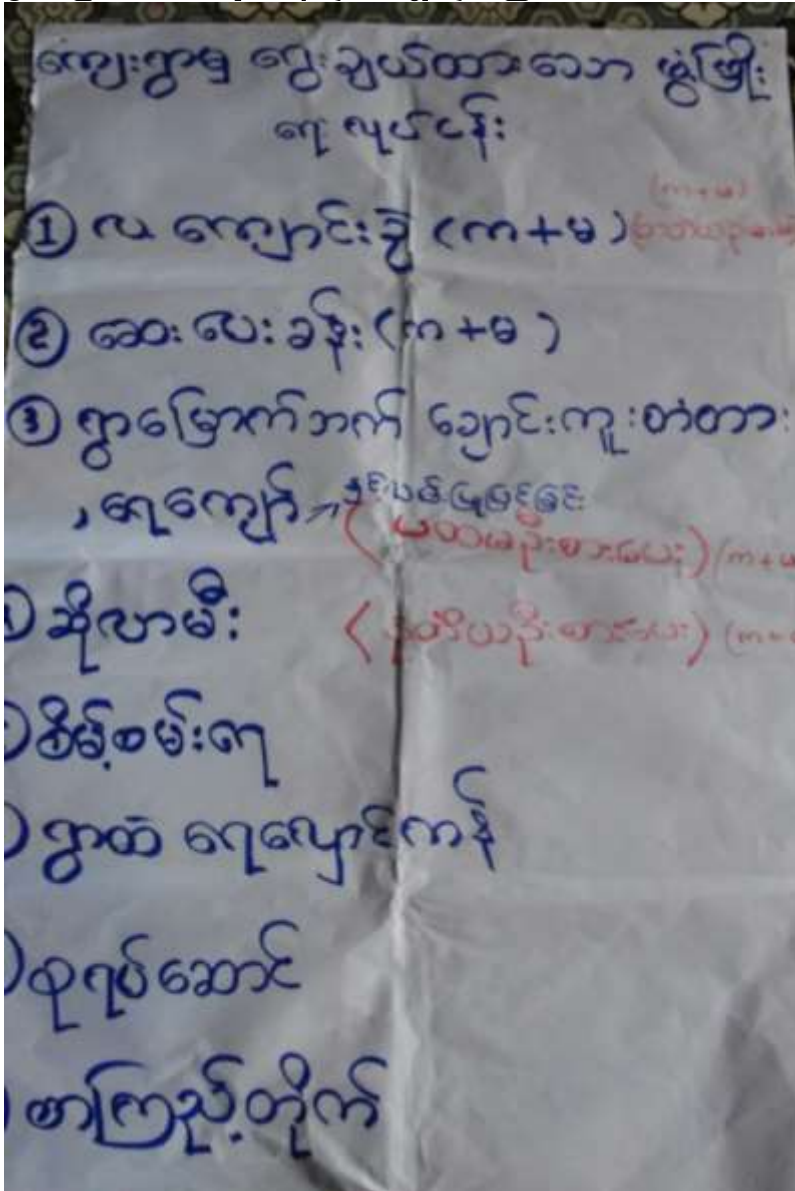 ကျေးရွာမှ ရွေးချယ်ထားသော ဖွံ့ဖြိုး
ရေး လုပ်ငန်း
(က+မ)
① လ ကျောင်းခွဲ (က+မ)
② ဆေးပေးခန်း (က+မ)
③ ရွာမြောက်ဘက် ချောင်းကူးတံတား
, ရေကျော်
(ပထမဦးစားပေး) (က+မ
ဆိုလာမီး (ဒုတိယဦးစားပေး) (က+
စိမ့်စမ်းရေ
ရွာထဲ ရေလှောင်ကန်
စုရပ်ဆောင်
စာကြည့်တိုက်